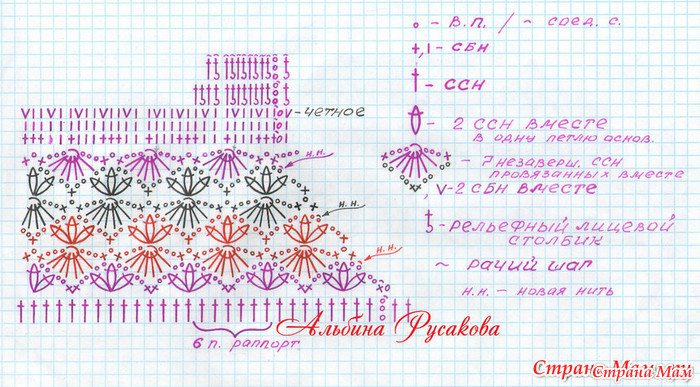 o - В.П. / ⌒ СОЕД. С.
+,ı - СБН
† - ССН
- 2 ССН ВМЕСТЕ
В ОДНУ ПЕТЛЮ ОСНОВ.
- 7 НЕЗАВЕРШ. ССН
ПРОВЯЗАННЫХ ВМЕСТЕ
V - 2 СБН ВМЕСТЕ
- РЕЛЬЕФНЫЙ ЛИЦЕВОЙ
СТОЛБИК
~ РАЧИЙ ШАГ
Н.Н. - НОВАЯ НИТЬ
V - ЧЕТНОЕ
Н.Н.
Н.Н.
Н.Н.
6 п. раппорт
Альбина Русакова
Страна Мам.ру
Страна Мам